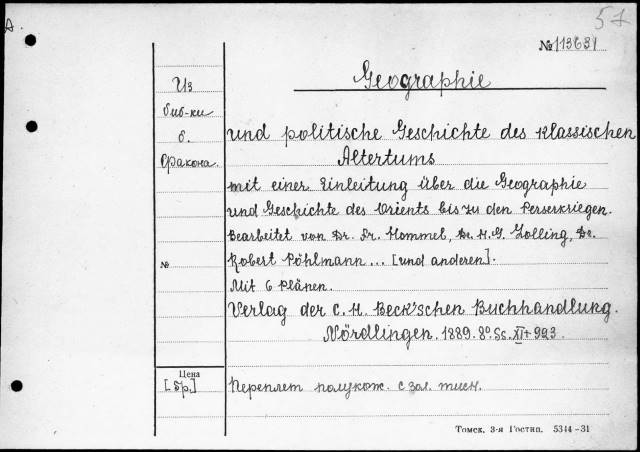 57
А.
№ 113631
Geographie
Из
биб-ки
б.
Фракона.
und politische Geschichte des klassischen
Altertums
mit einer Einleitung über die Geographie
und Geschichte des Orients bis zu den Perserkriegen.
Bearbeitet von Dr. Fr. Hommel, Dr. H.G. Lolling, Dr.
№ Robert Pöhlmann... [und anderen].
Mit 6 Plänen.
Verlag der C. H. Beck'schen Buchhandlung.
Nördlingen. 1889. 8º. Ss. XI + 993.
Цена
[5р.] Переплет полукож. с зол. тисн.
Томск, 3-я Гостип. 5344-31